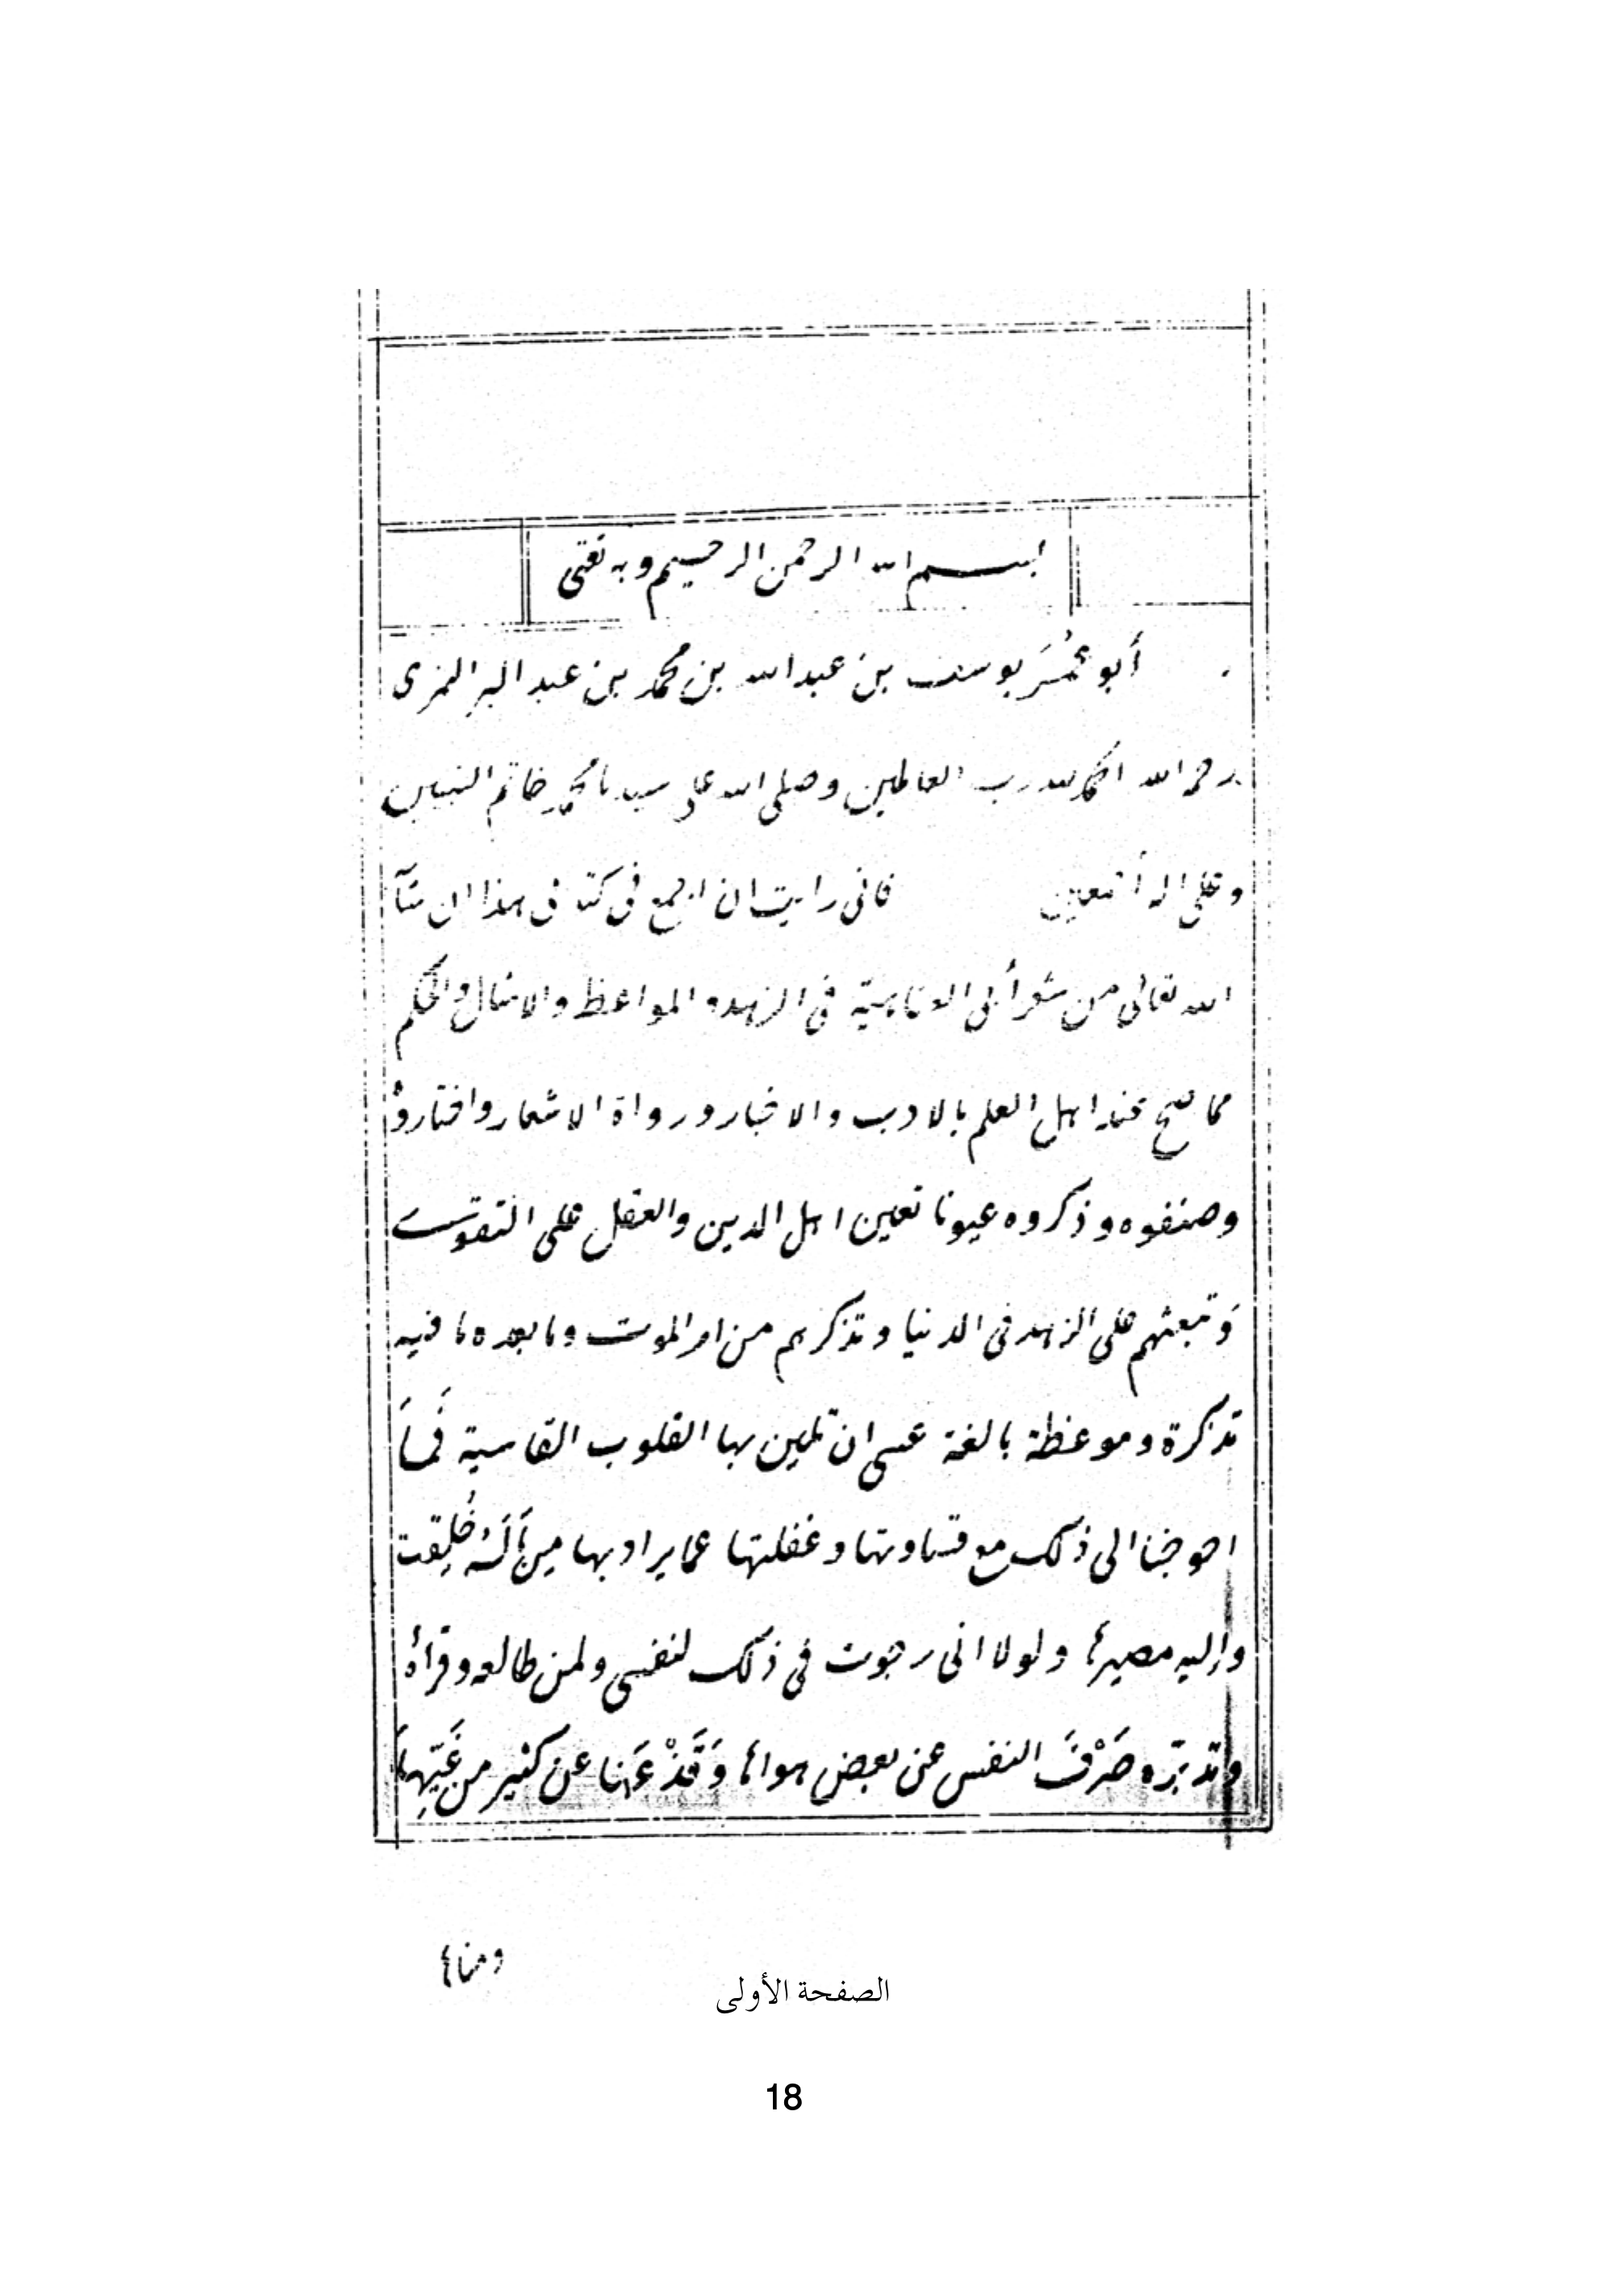 بسم الله الرحمن الرحيم وبه ثقتى
أبو عُمَرَ يوسف بن عبدالله بن محمد بن عبد البر النمرى
رحمه الله الحمد لله رب العالمين وصلى الله على سيدنا محمد خاتم النبيين
وعلى اله أجمعين فانى رايت ان اجمع فى كتابى هذا ان شآ
الله تعالى من شعر أبى العتاهية فى الزهد والمواعظ والامثال والحكم
مما صح عند اهل العلم بالادب والاخبار ورواة الاشعار واختاروهُ
وصنفوه وذكروه عيونا تعين اهل الدين والعقل على التقوى
وَتبعثهم على الزهد فى الدنيا وتذكرهم من امر الموت وما بعده ما فيه
تذكرة وموعظة بالغة عسى ان تلين بها القلوب القاسية فَمَا
احوجنا الى ذلك مع قساوتها وغفلتها عما يراد بها مِمَّا لَهُ خُلِقت
وإليه مصيرها ولولا انى رجوت فى ذلك لنفسى ولمن طالعه وقرأه
وتدبّره صَرْفَ النفس عن بعض هواها وَقَدْعَهَا عن كثير من غَيِّهَا
ومناها
الصفحة الأولى
18